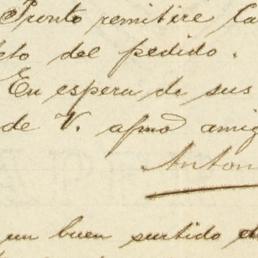 Pronto remitire la
do del pedido.
En espera de sus
de V. afmo amig
Anton
un buen surtido d